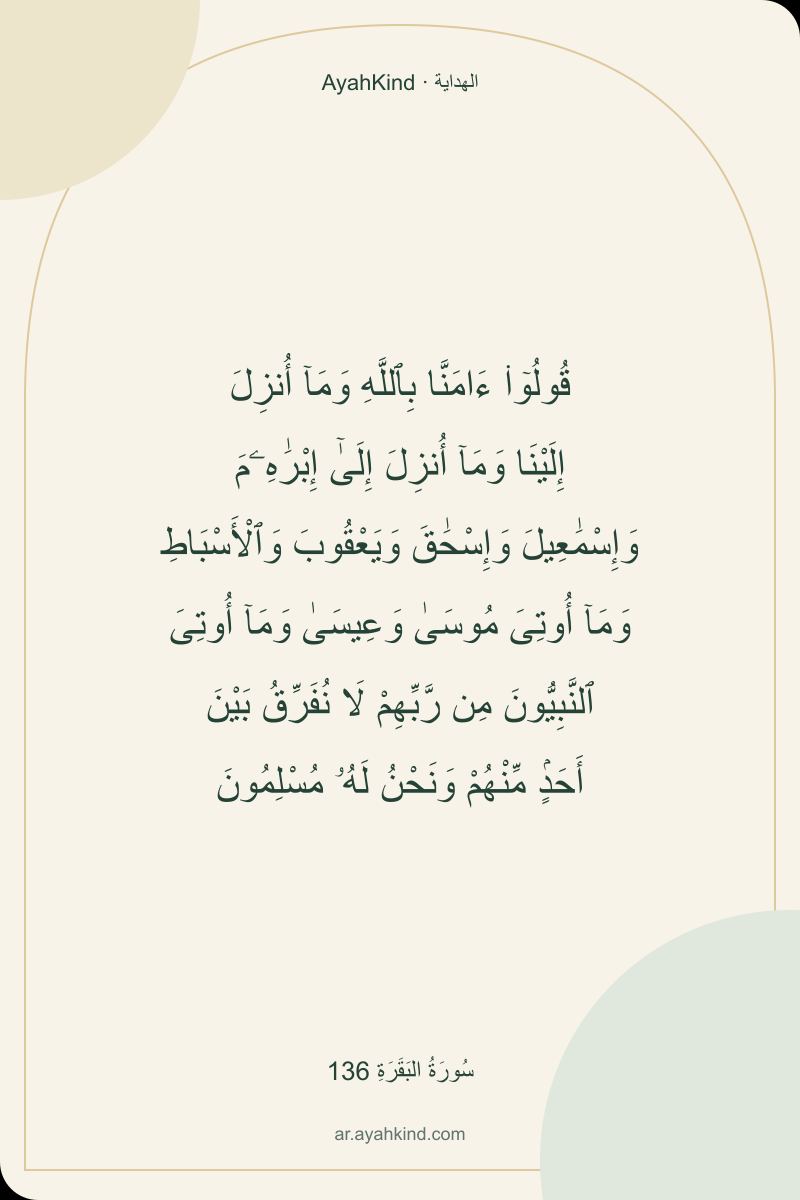 AyahKind · الهداية
قُولُوٓا۟ ءَامَنَّا بِٱللَّهِ وَمَآ أُنزِلَ
إِلَيْنَا وَمَآ أُنزِلَ إِلَىٰٓ إِبْرَٰهِـۧمَ
وَإِسْمَـٰعِيلَ وَإِسْحَـٰقَ وَيَعْقُوبَ وَٱلْأَسْبَاطِ
وَمَآ أُوتِىَ مُوسَىٰ وَعِيسَىٰ وَمَآ أُوتِىَ
ٱلنَّبِيُّونَ مِن رَّبِّهِمْ لَا نُفَرِّقُ بَيْنَ
أَحَدٍۢ مِّنْهُمْ وَنَحْنُ لَهُۥ مُسْلِمُونَ
سُورَةُ البَقَرَةِ 136
ar.ayahkind.com